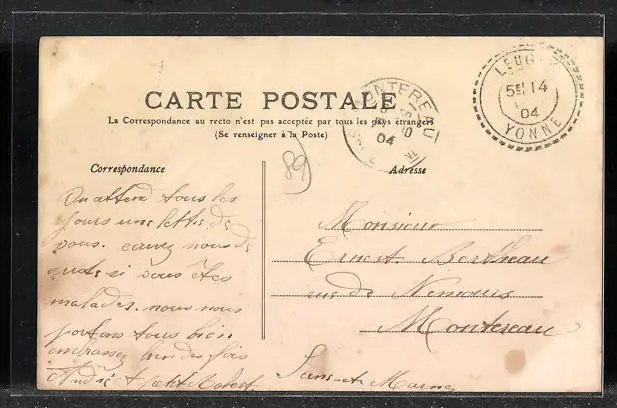 CARTE POSTALE
La Correspondance au recto n'est pas acceptée par tous les pays étrangers
(Se renseigner à la Poste)
MONTEREAU
04
LEUG
5E 14
04
YONNE
89
Correspondance
On attend tous les
jours une lettre de
vous. écrivez nous de
suite si vous êtes
malades. nous nous
portons tous bien
embrassez bien des fois
André et petit Robert
Adresse
Monsieur
Ernest Bertheau
rue de Nemours
Montereau
Seine-et-Marne